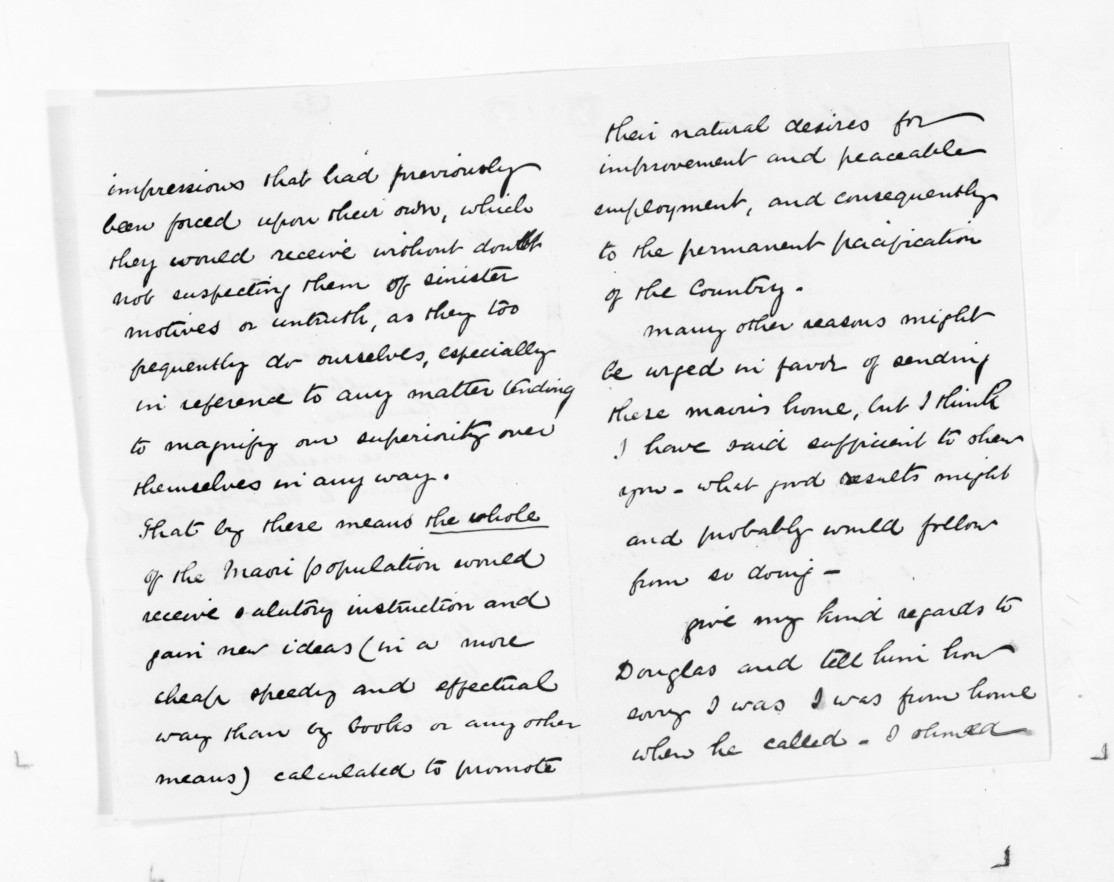 impressions that had previously
been forced upon their own, which
they would receive without doubt
not suspecting them of sinister
motives or untruth, as they too
frequently do ourselves, especially
in reference to any matter tending
to magnify our superiority over
themselves in any way.
That by these means the whole
of the Maori population would
receive salutory instruction and
gain new ideas (in a more
cheap speedy and effectual
way than by books or any other
means) calculated to promote
their natural desires for
improvement and peaceable
employment, and consequently
to the permanent pacification
of the Country.
many other reasons might
be urged in favor of sending
these maoris home, but I think
I have said sufficient to shew
you - what good results might
and probably would follow
from so doing -
give my kind regards to
Douglas and tell him how
sorry I was I was from home
when he called - I should